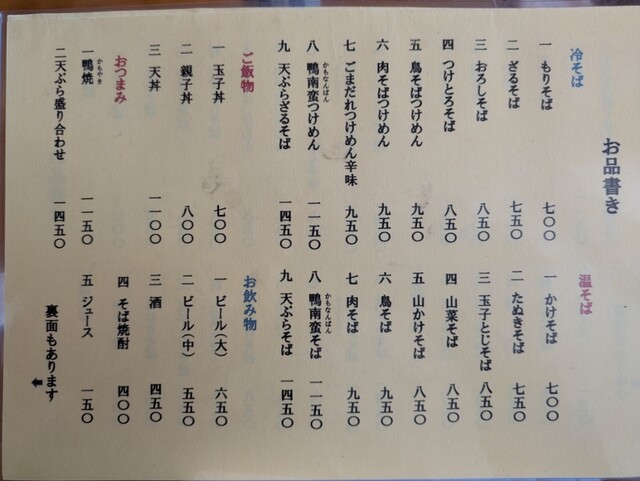 お品書き
冷そば
一 もりそば 七〇〇
二 ざるそば 七五〇
三 おろしそば 八五〇
四 つけとろそば 八五〇
五 鳥そばつけめん 九五〇
六 肉そばつけめん 九五〇
七 ごまだれつけめん辛味 九五〇
八 鴨南蛮つけめん 一一五〇
かもなんばん
九 天ぷらざるそば 一四五〇
ご飯物
一 玉子丼 七〇〇
二 親子丼 八〇〇
三 天丼 一一〇〇
おつまみ
一 鴨焼 一一五〇
かもやき
二 天ぷら盛り合わせ 一四五〇
温そば
一 かけそば 七〇〇
二 たぬきそば 七五〇
三 玉子とじそば 八五〇
四 山菜そば 八五〇
五 山かけそば 八五〇
六 鳥そば 九五〇
七 肉そば 九五〇
八 鴨南蛮そば 一一五〇
かもなんばん
九 天ぷらそば 一四五〇
お飲み物
一 ビール(大) 六五〇
二 ビール(中) 五五〇
三 酒 四五〇
四 そば焼酎 四〇〇
五 ジュース 一五〇
裏面もあります